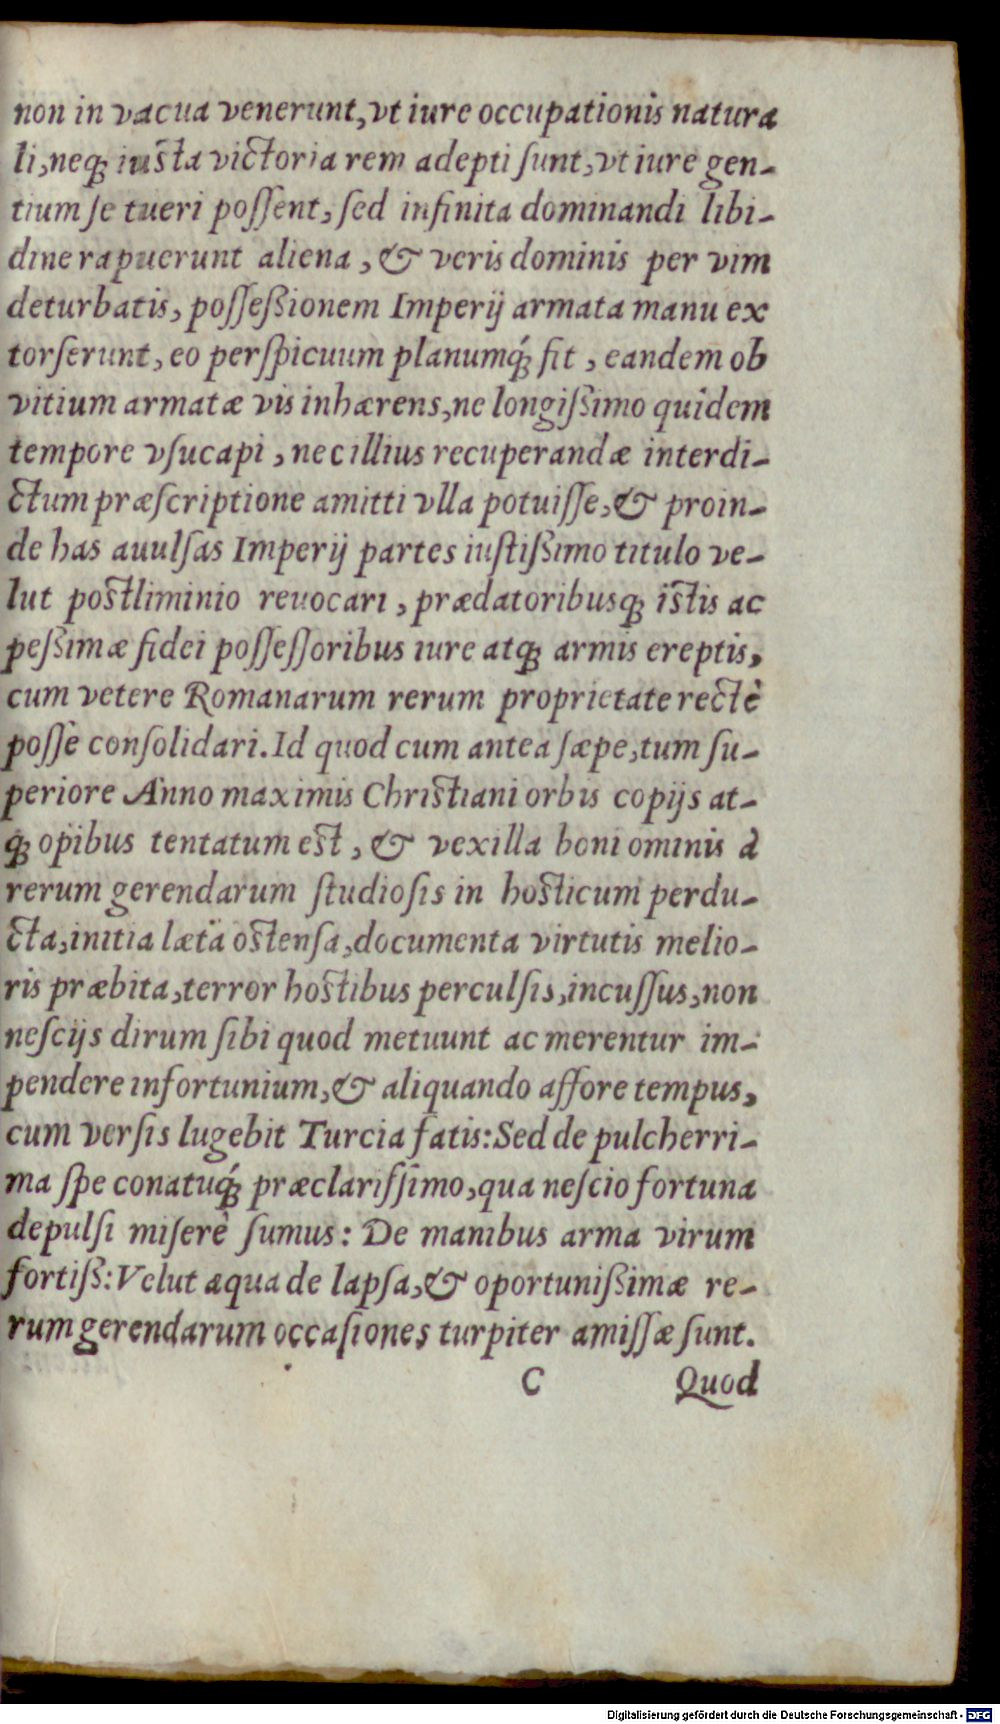 non in vacua venerunt, vt iure occupationis natura
li, neq; iusta victoria rem adepti sunt, vt iure gen-
tium se tueri possent, sed infinita dominandi libi-
dine rapuerunt aliena, & veris dominis per vim
deturbatis, possessionem Imperij armata manu ex
torserunt, eo perspicuum planumq́; fit, eandem ob
vitium armatæ vis inhærens, ne longissimo quidem
tempore vsucapi, nec illius recuperandæ interdi-
ctum præscriptione amitti vlla potuisse, & proin-
de has auulsas Imperij partes iustissimo titulo ve-
lut postliminio reuocari, prædatoribusq; istis ac
pessimæ fidei possessoribus iure atq; armis ereptis,
cum vetere Romanarum rerum proprietate rectè
posse consolidari. Id quod cum antea sæpe, tum su-
periore Anno maximis Christiani orbis copijs at-
q; opibus tentatum est, & vexilla boni ominis à
rerum gerendarum studiosis in hosticum perdu-
cta, initia læta ostensa, documenta virtutis melio-
ris præbita, terror hostibus perculsis, incussus, non
nescijs dirum sibi quod metuunt ac merentur im-
pendere infortunium, & aliquando affore tempus,
cum versis lugebit Turcia fatis: Sed de pulcherri-
ma spe conatuq́; præclarissimo, qua nescio fortuna
depulsi miserè sumus: De manibus arma virum
fortiß: Velut aqua de lapsa, & oportunissimæ re-
rum gerendarum occasiones turpiter amissæ sunt.
C Quod
Digitalisierung gefördert durch die Deutsche Forschungsgemeinschaft - DFG